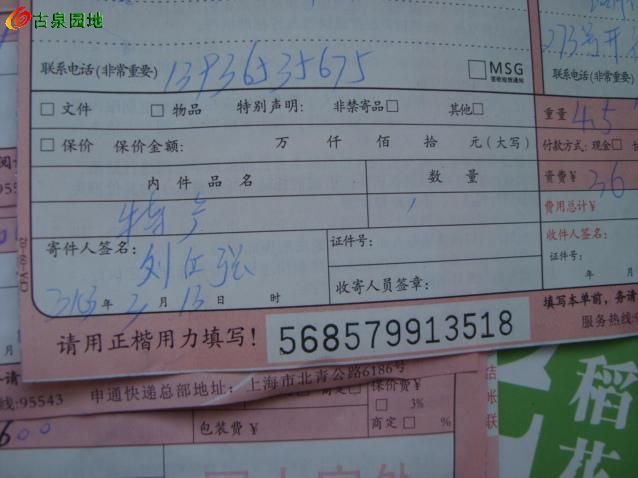 古泉园地
273号
联系电话(非常重要) 13936535675 □MSG (非常重要)
□ 文件 □ 物品 特别声明: 非禁寄品□ 其他□ 重量 4.5
□ 保价 保价金额: 万 仟 佰 拾 元(大写) 付款方式: 现金□
内件品名 数量 资费¥ 36
费用总计¥
寄件人签名: 证件号: 收件人签名:
证件号:
收寄人员签章: 年 月
年 3 月 13 日 时
请用正楷用力填写! 568579913518 填写本单前，务请
服务热线
95543 申通快递总部地址: 上海市北青公路6186号
保价费¥
□ 3%
包装费¥ 商定□ %
稻
花